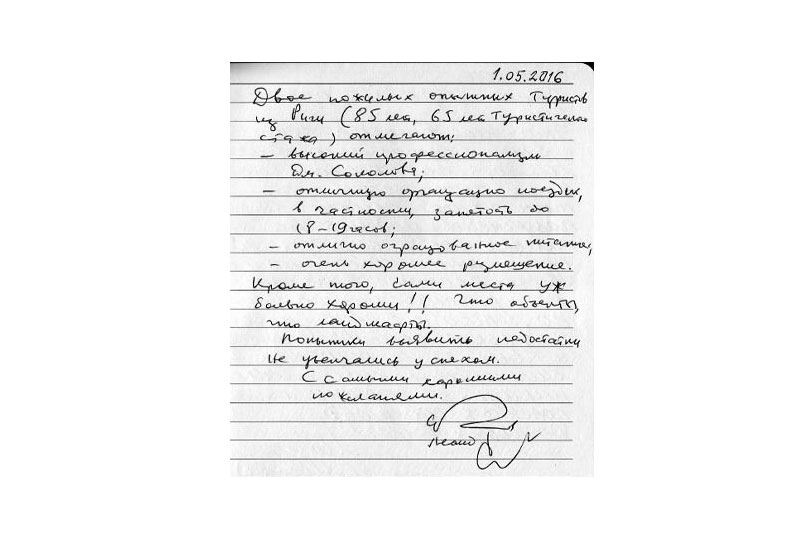 1.05.2016
Двое пожилых опытных туристов
из Риги (85 лет, 65 лет туристического
стажа) отмечают:
– высокий профессионализм
Дм. Соколова;
– отличную организацию поездки,
в частности, занятость до
18–19 часов;
– отлично организованное питание;
– очень хорошее размещение.
Кроме того, сами места уж
больно хороши!! Что объекты,
что ландшафты.
Попытки выявить недостатки
не увенчались успехом.
С самыми хорошими
пожеланиями.